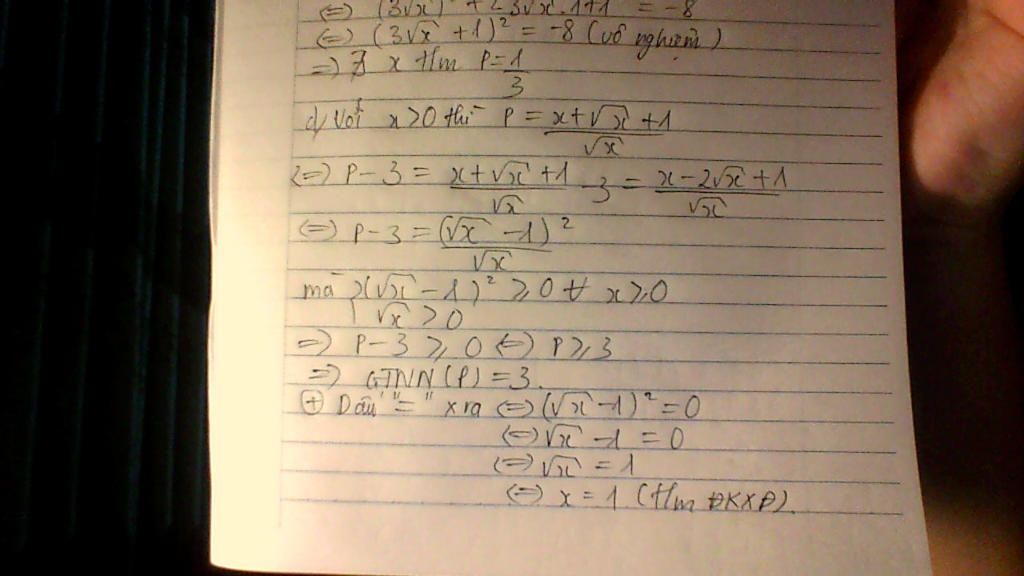 ⇔ (3√x)² + 2.3√x.1+1 = -8
⇔ (3√x +1)² = -8 (vô nghiệm)
⇒ ∄ x t/m P = 1/3
d/ Với x>0 thì P = (x+√x+1)/√x
⇔ P-3 = (x+√x+1)/√x - 3 = (x-2√x+1)/√x
⇔ P-3 = (√x -1)²/√x
mà { (√x -1)² ≥ 0 ∀ x ≥ 0
√x > 0
⇒ P-3 ≥ 0 ⇔ P ≥ 3
⇒ GTNN(P) = 3.
⊕ Dấu "=" xra ⇔ (√x -1)² = 0
⇔ √x -1 = 0
⇔ √x = 1
⇔ x = 1 (t/m ĐKXĐ).